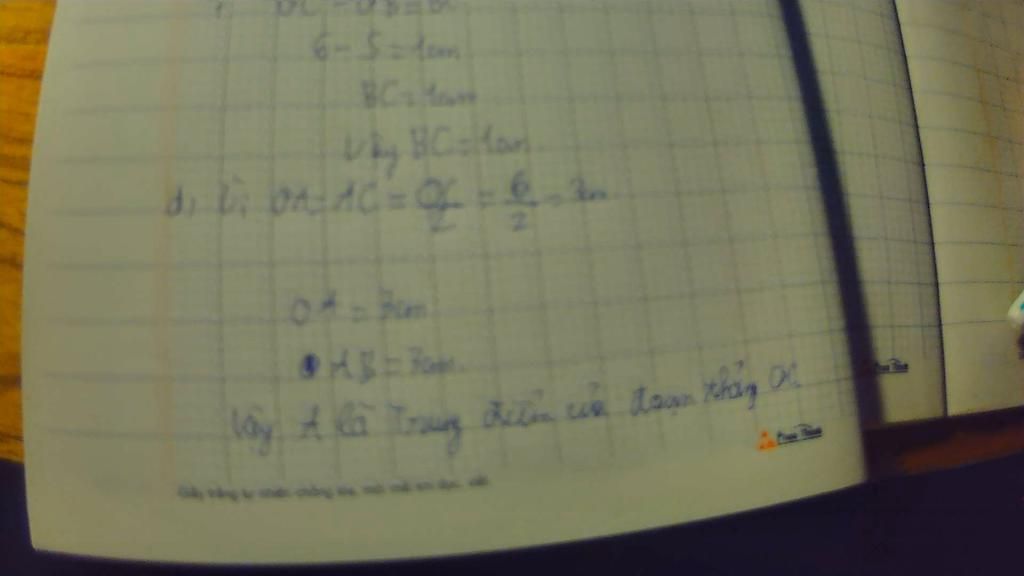 OC - OB = BC
6 - 5 = 1cm
BC = 1cm
Vậy BC = 1cm
d, Vì OA = AC = OC/2 = 6/2 = 3cm
OA = 3cm
AB = 3cm
Vậy A là trung điểm của đoạn thẳng OC